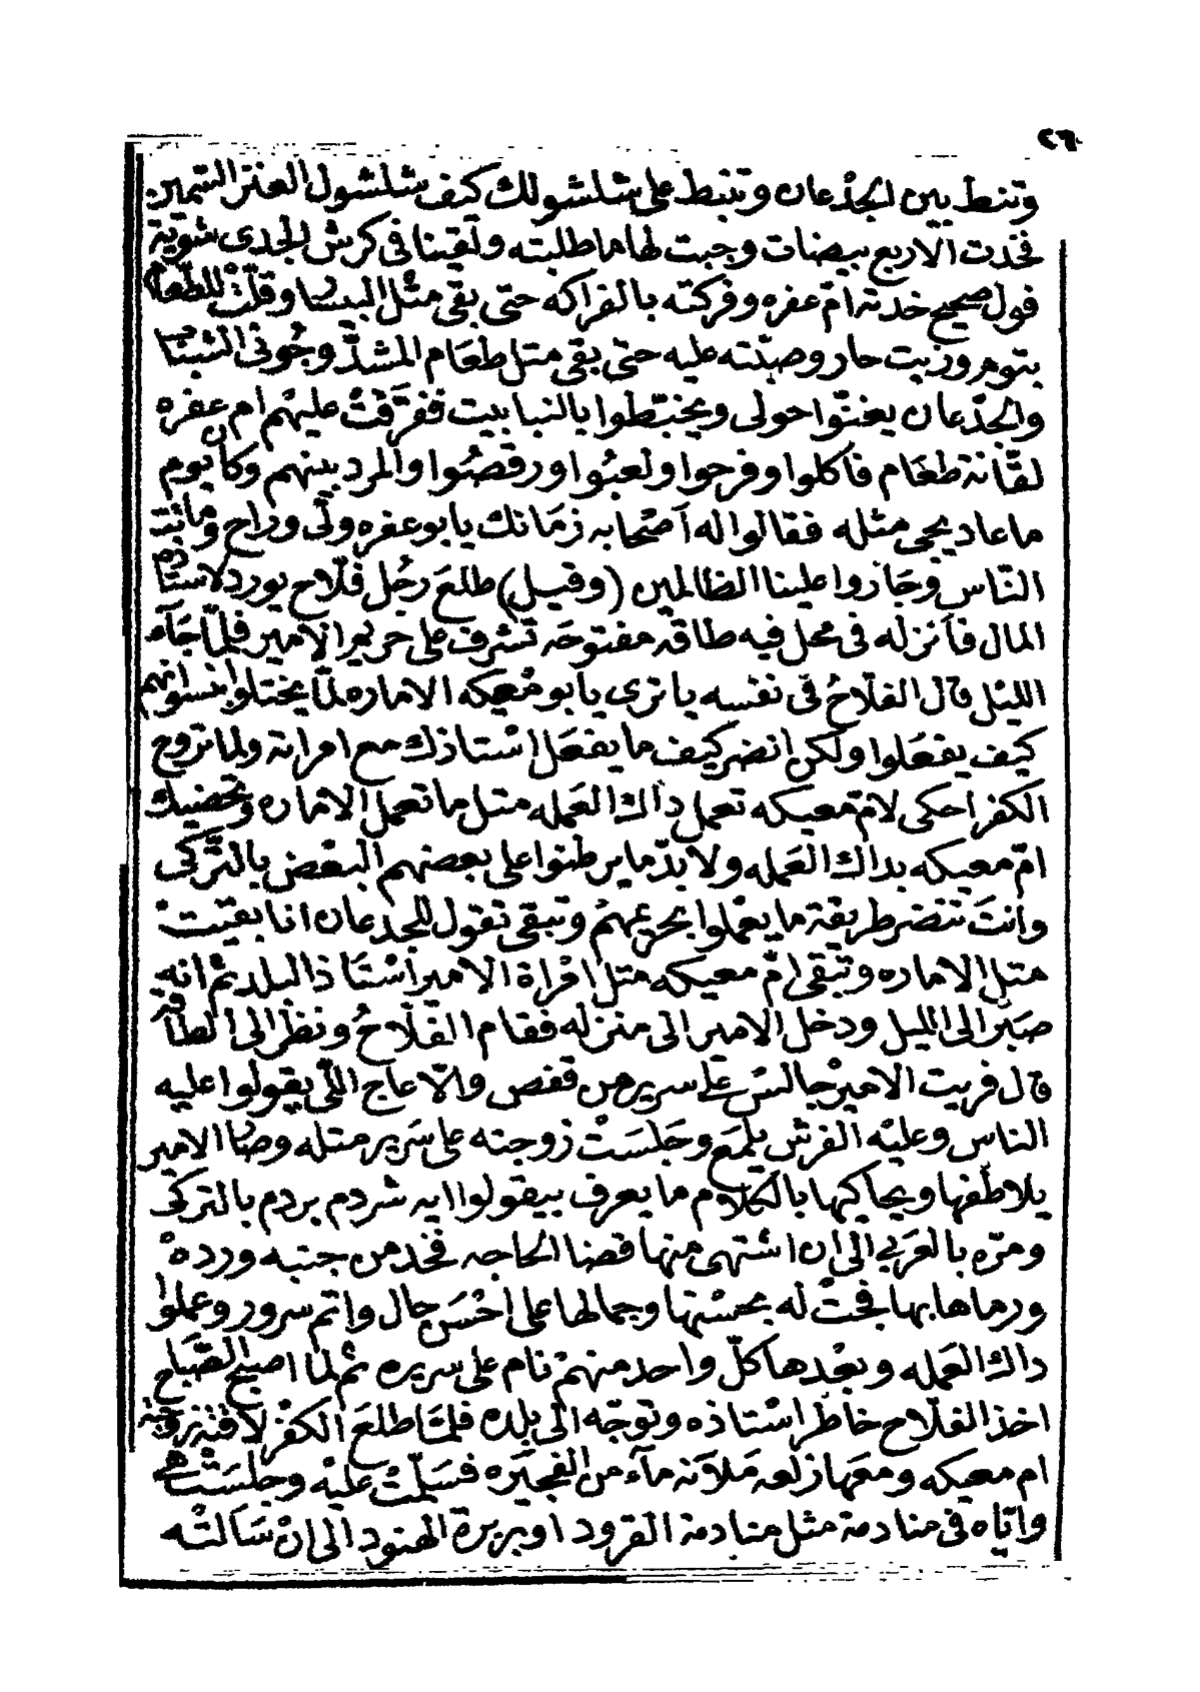 ٢٦
وتنط بين الجدعان وتنبط على شلشولك كيف شلشول العنز السمين
فخدت الاربع بيضات وجبت لها ما طلبته ولقينا فى كرش الجدى شوية
فول صحيح خدته امّ عفره وفركته بالفراكه حتى بقى مثل البسا وقلت للطعام
بتوم وزيت حار وصبّته عليه حتى بقى متل طعام المشدّ وجونى الشباب
والجدعان يغنّوا حولى ويخبّطوا بالنبابيت ففرّقت عليهم ام عفره
لقّانة طعام فاكلوا وفرحوا ولعبُوا ورقصُوا والمرد بينهم وكان يوم
ما عاد يجى مثله فقالوا له اصحابه زمانك يابو عفره ولّى وراح وماتت
النّاس وجازوا علينا الظالمين (وقيل) طلعَ رجُل فلّاح يورد لاستاده
المال فانزله فى محل فيه طاقه مفتوحه تشرف على حريم الامير فلمّا جاء
الليل قال الفلّاحُ فى نفسه يا ترى يابو مُعيكه الاماره لمّا يختلوا بنسوانهم
كيف يفعَلوا ولكن انضر كيف ما يفعَل استاذك مع امراتة ولما تروح
الكفر احكى لامّ معيكه تعمل داك العَمله متل ما تعمل الاماره وتحضيك
امّ معيكه بداك العَمله ولا بدّ ما يرطنوا على بعضهم البعْض بالتّركى
وانتَ تنضر طريقة ما يعْملوا بحريمهمُ وتبقى تقول للجدعان انا بقيت
متل الاماره وتبْقى امّ معيكه متل امْراة الامير استاذ البلد ثم انه
صبَر الى الليل ودخل الامير الى منزله فقام الفلّاحُ ونظر الى الطاقه
قال فريت الاميرْ جالسْ على سرير من قفص والّا عاج اللّى يقولوا عليه
الناس وعليْه الفرش يلمَع وجَلسَتْ زوجته على سَرير متله وصار الامير
يلاطفها ويحاكيها بالكلام ما يعرف بيقولوا ايه شردم بردم بالتركى
ومرّه بالعَربي الى ان اشتهى منها قضا الحاجه فخد من جنبه ورده
ورماها بها فجتْ له بحسْنها وجمالها على احْسَن حال واتم سرور وعملوا
داك العَمله وبعْدها كلّ واحد منهمْ نام على سريره ثم لما اصبح الصّباح
اخذ الفلّاح خاطر استاذه وتوجّه الى بلده فلمّا طلعَ الكفْر لاقته زوجته
ام معيكه ومعها زلعه مَلآنه مآء من الفجيَره فسَلّمتْ عليْه وجلسَتْ هى
وايّاه فى منادمة مثل منادمة القرود او بربرة الهنود الى انْ سَالتْه